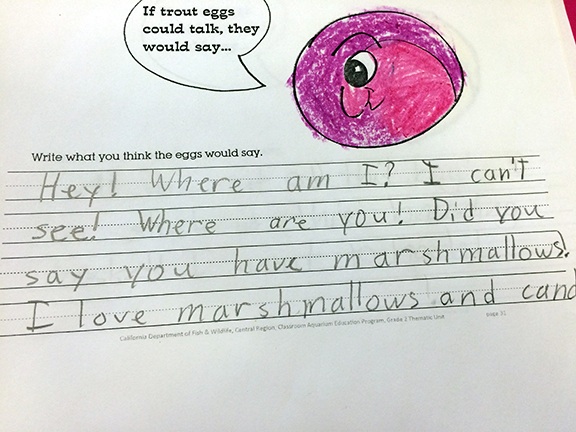 If trout eggs
could talk, they
would say...
Write what you think the eggs would say.
Hey! Where am I? I can't
see! Where are you! Did you
say you have marshmallows!
I love marshmallows and cand
California Department of Fish & Wildlife, Central Region, Classroom Aquarium Education Program, Grade 2 Thematic Unit
page 31